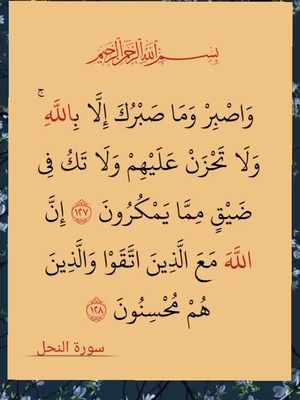 بِسْمِ اللَّهِ الرَّحْمَٰنِ الرَّحِيمِ
وَاصْبِرْ وَمَا صَبْرُكَ إِلَّا بِاللَّهِ ۚ
وَلَا تَحْزَنْ عَلَيْهِمْ وَلَا تَكُ فِي
ضَيْقٍ مِمَّا يَمْكُرُونَ ﴿١٢٧﴾ إِنَّ
اللَّهَ مَعَ الَّذِينَ اتَّقَوْا وَالَّذِينَ
هُمْ مُحْسِنُونَ ﴿١٢٨﴾
سورة النحل